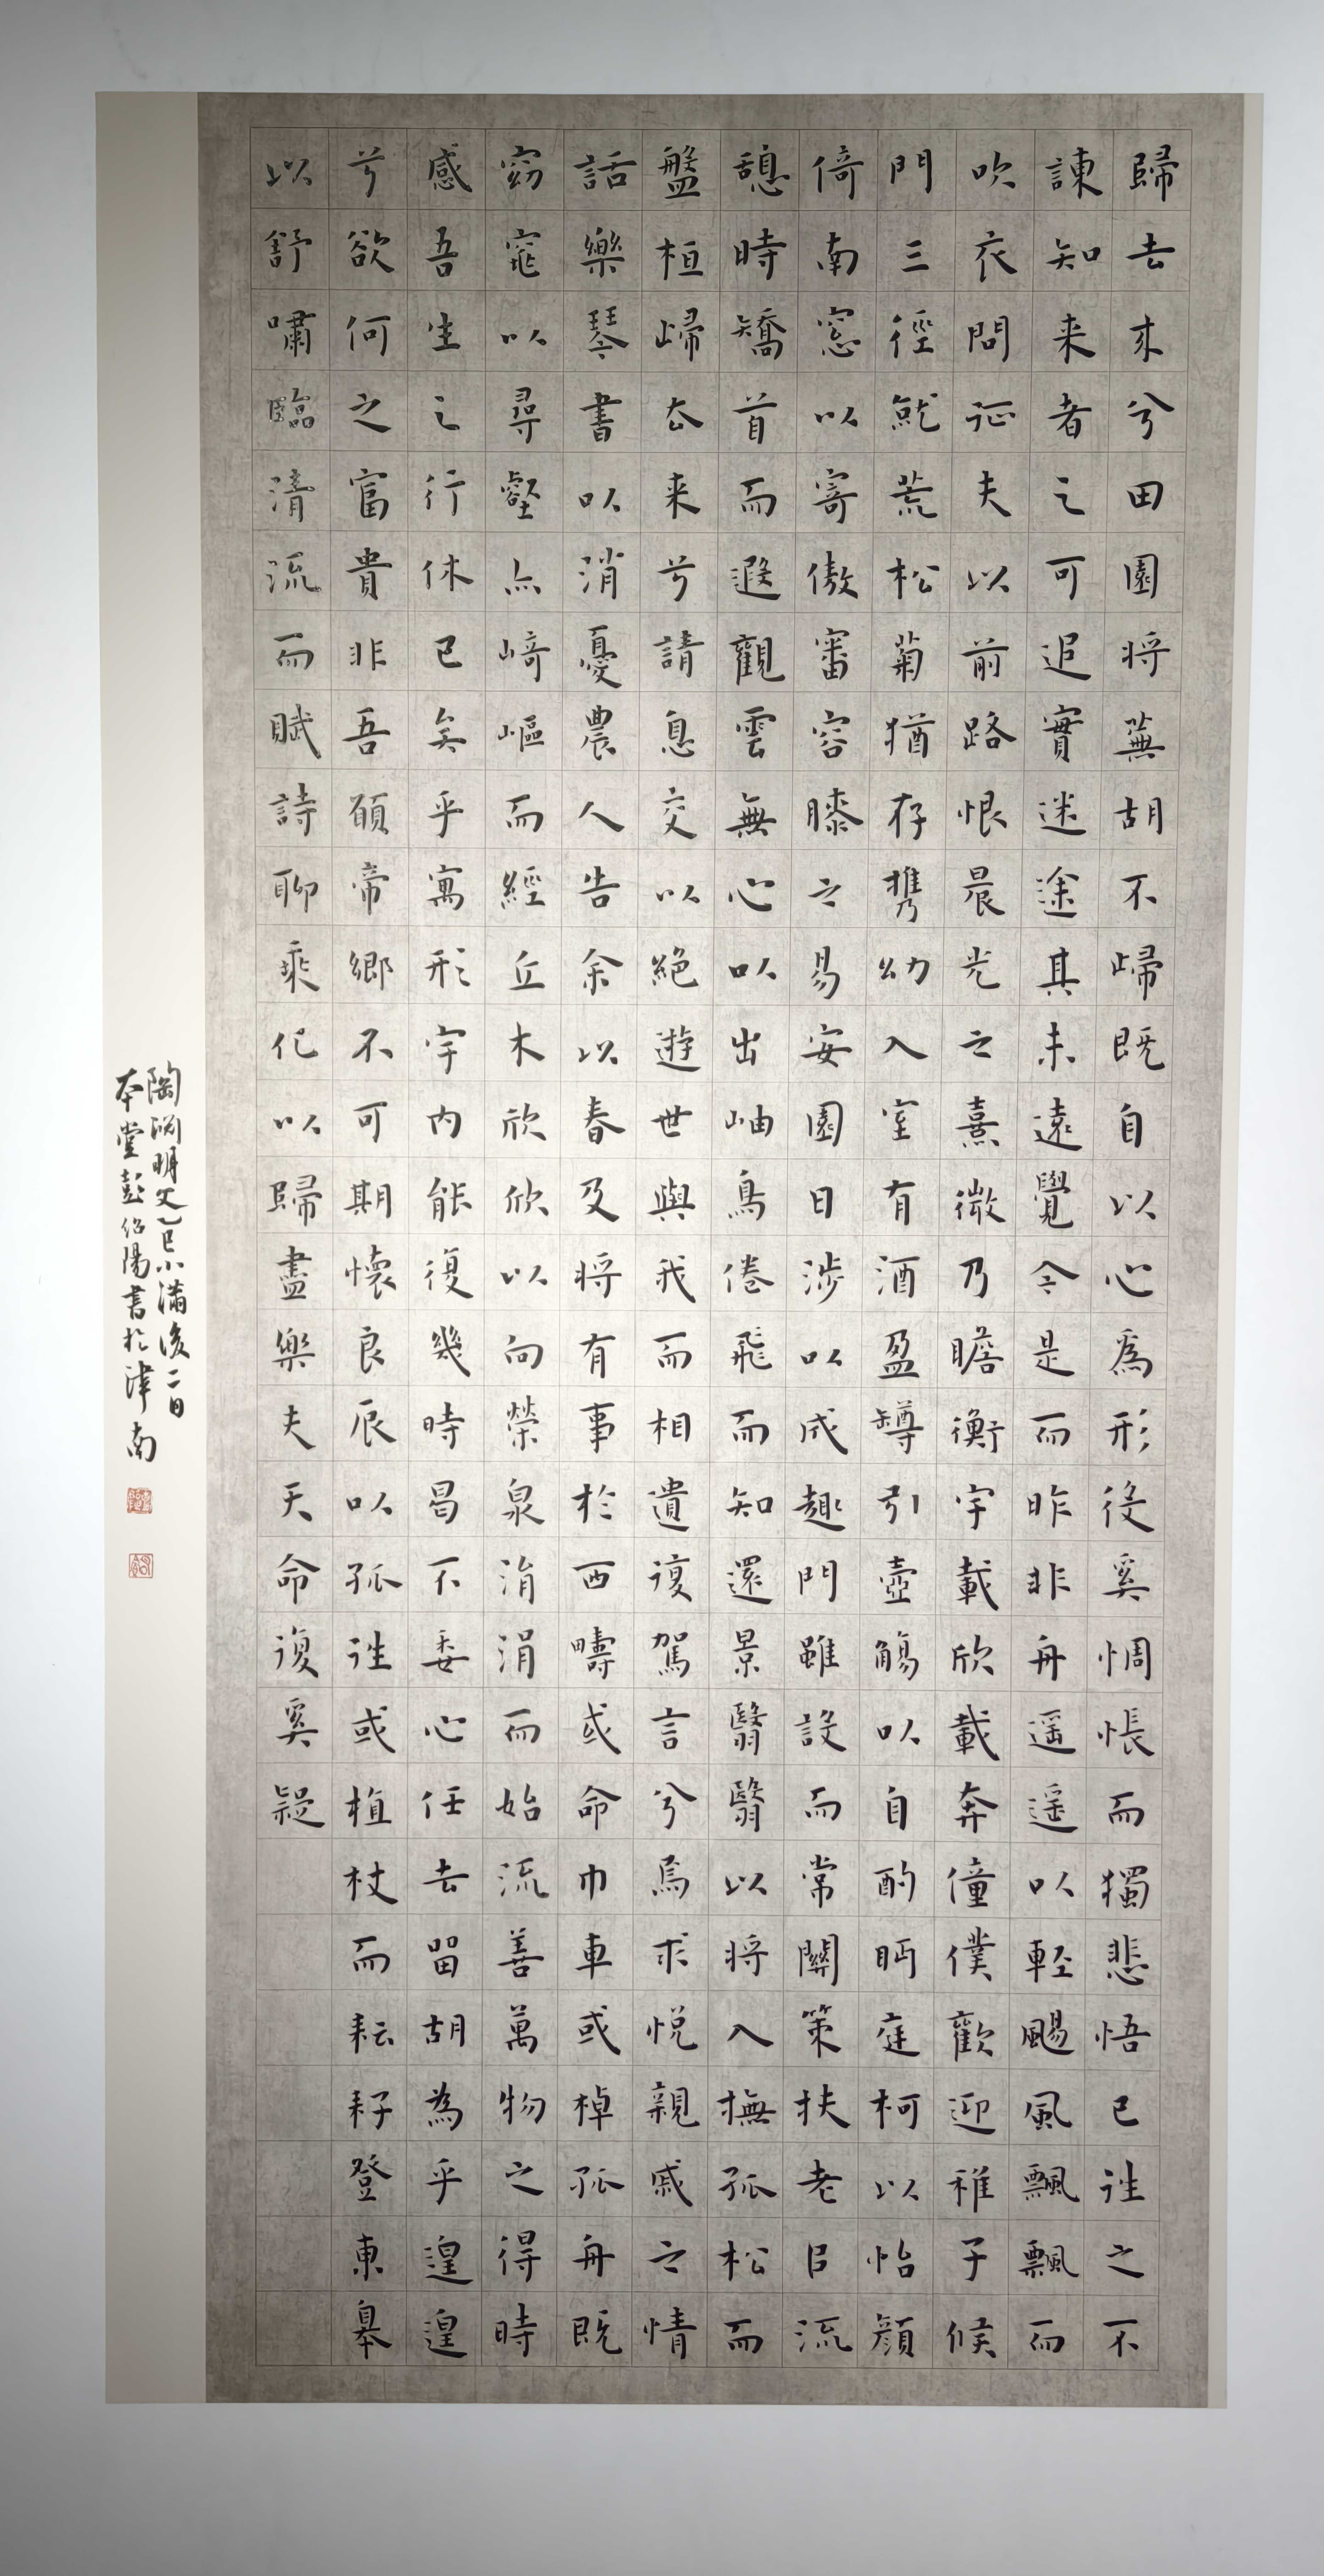 歸去来兮田園将蕪胡不歸既自以心爲形役奚惆悵而獨悲悟已往之不
諫知来者之可追實迷途其未遠覺今是而昨非舟遥遥以輕颺風飄飄而
吹衣問征夫以前路恨晨光之熹微乃瞻衡宇載欣載奔僮僕歡迎稚子候
門三徑就荒松菊猶存携幼入室有酒盈罇引壺觴以自酌眄庭柯以怡顔
倚南窓以寄傲審容膝之易安園日涉以成趣門雖設而常關策扶老㠯流
憩時矯首而遐觀雲無心以出岫鳥倦飛而知還景翳翳以将入撫孤松而
盤桓歸去来兮請息交以絕遊世與我而相遺復駕言兮焉求悦親戚之情
話樂琴書以消憂農人告余以春及将有事於西疇或命巾車或棹孤舟既
窈窕以尋壑亦崎嶇而經丘木欣欣以向榮泉涓涓而始流善萬物之得時
感吾生之行休已矣乎寓形宇内能復幾時曷不委心任去留胡為乎遑遑
兮欲何之富貴非吾願帝鄉不可期懷良辰以孤往或植杖而耘耔登東皋
以舒嘯臨清流而賦詩聊乘化以歸盡樂夫天命復奚疑
陶淵明文乙巳小滿後二日
本堂彭紹陽書於津南